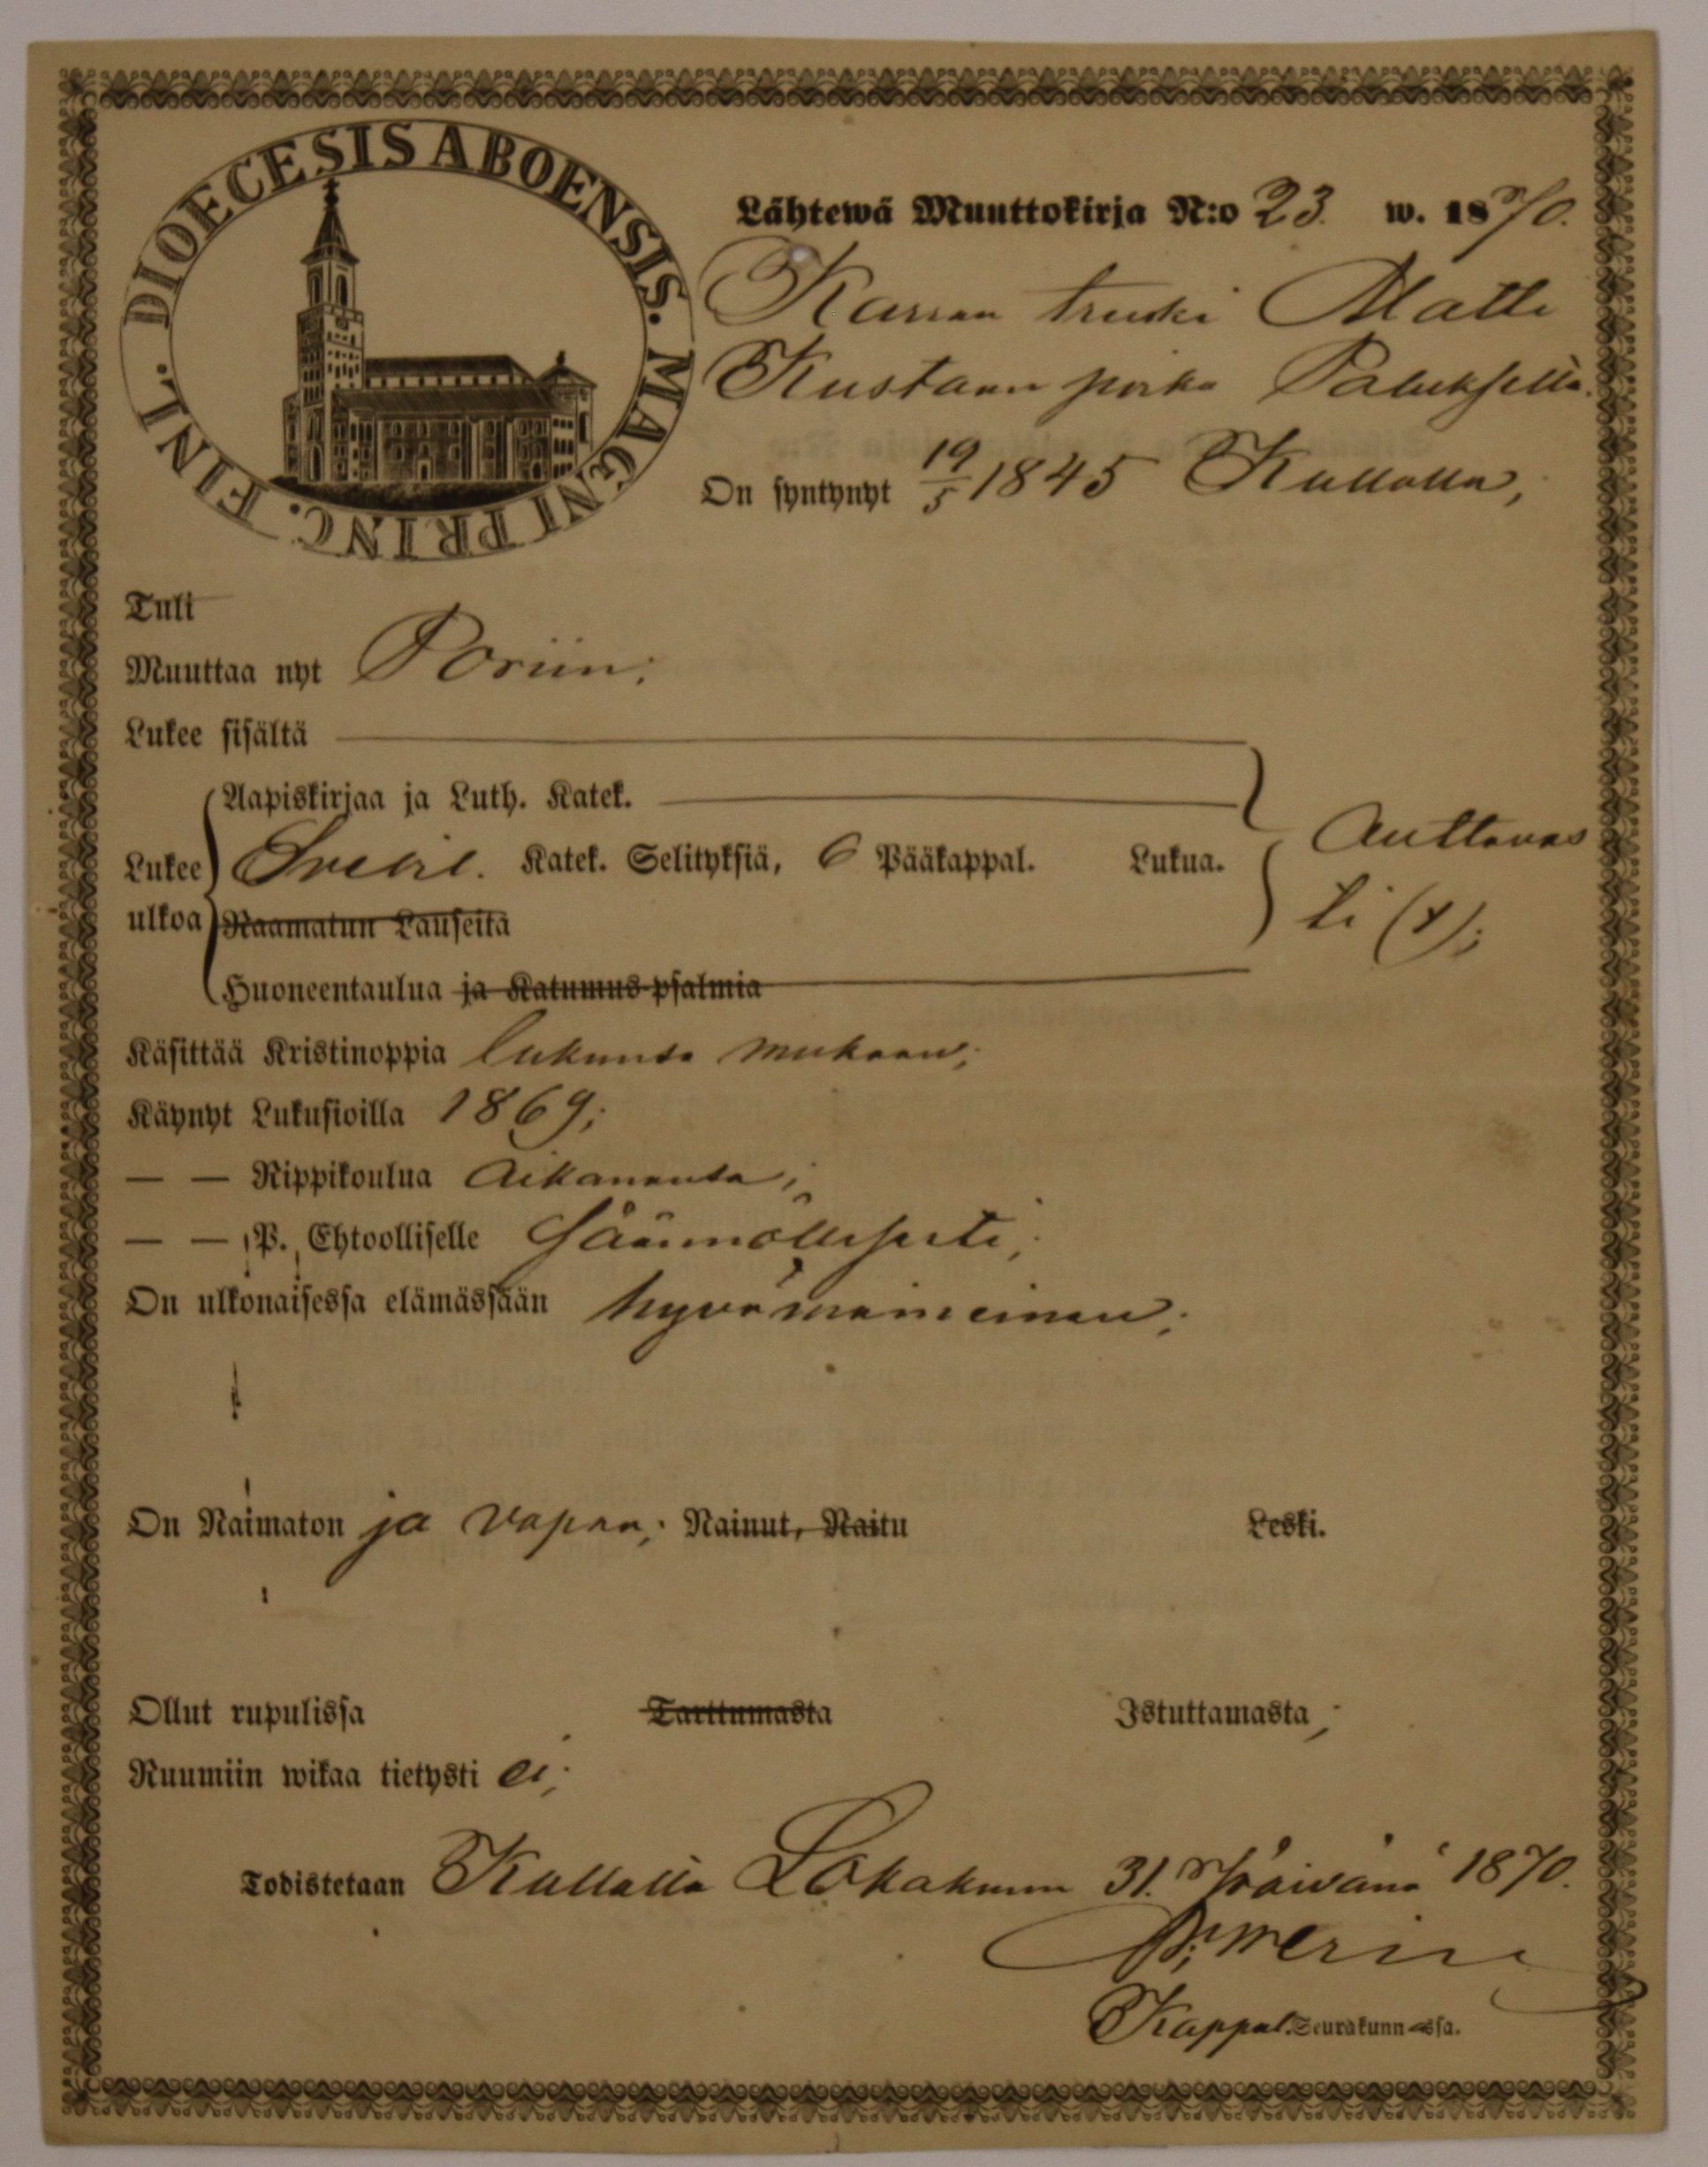 DIOECESIS ABOENSIS. MAGNI PRINC. FINL.
Lähtewä Muuttokirja N:o 23. w. 1870.
Karran trenki Matti
Kustaan poika Paluksella.
On syntynyt 19/5 1845 Kullalla,
Tuli
Muuttaa nyt Poriin;
Lukee sisältä
Aapiskirjaa ja Luth. Katek.
Lukee Svebil. Katek. Selityksiä, 6 Pääkappal. Lukua. Auttavas
ulkoa Raamatun Lauseita ti (+);
Huoneentaulua ja Katumus-psalmia
Käsittää Kristinoppia lukunsa mukaan;
Käynyt Lukusioilla 1869;
— — Rippikoulua Aikananta;
— — P. Ehtoolliselle Säännöllisesti;
On ulkonaisessa elämässään hyvämaineinen;
On Naimaton ja vapaa; Nainut, Naitu Leski.
Ollut rupulissa Tarttumasta Istuttamasta;
Ruumiin wikaa tietysti ei;
Todistetaan Kullalla Lokakuun 31. Päivänä 1870.
Kappal. Seurakunnassa.